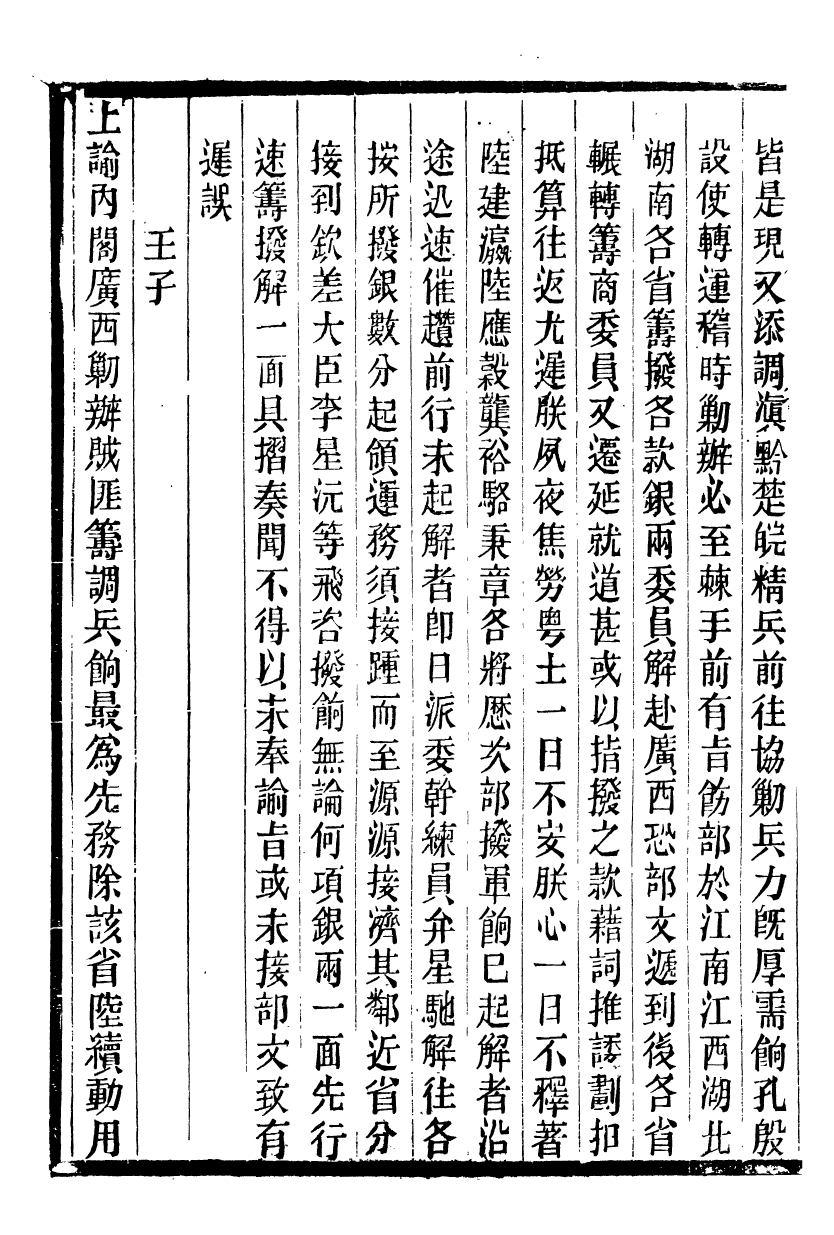 皆是現又添調滇黔楚皖精兵前往協勦兵力旣厚需餉孔殷
設使轉運稽時勦辦必至棘手前有旨飭部於江南江西湖北
湖南各省籌撥各款銀兩委員解赴廣西恐部文遞到後各省
輾轉籌商委員又遷延就道甚或以指撥之款藉詞推諉劃扣
抵算往返尤遲朕夙夜焦勞粤土一日不安朕心一日不釋著
陸建瀛陸應穀龔裕駱秉章各將歷次部撥軍餉已起解者沿
途迅速催趲前行未起解者卽日派委幹練員弁星馳解往各
按所撥銀數分起領運務須接踵而至源源接濟其鄰近省分
接到欽差大臣李星沅等飛咨撥餉無論何項銀兩一面先行
速籌撥解一面具摺奏聞不得以未奉諭旨或未接部文致有
遲誤
壬子
上諭內閣廣西勦辦賊匪籌調兵餉最爲先務除該省陸續動用